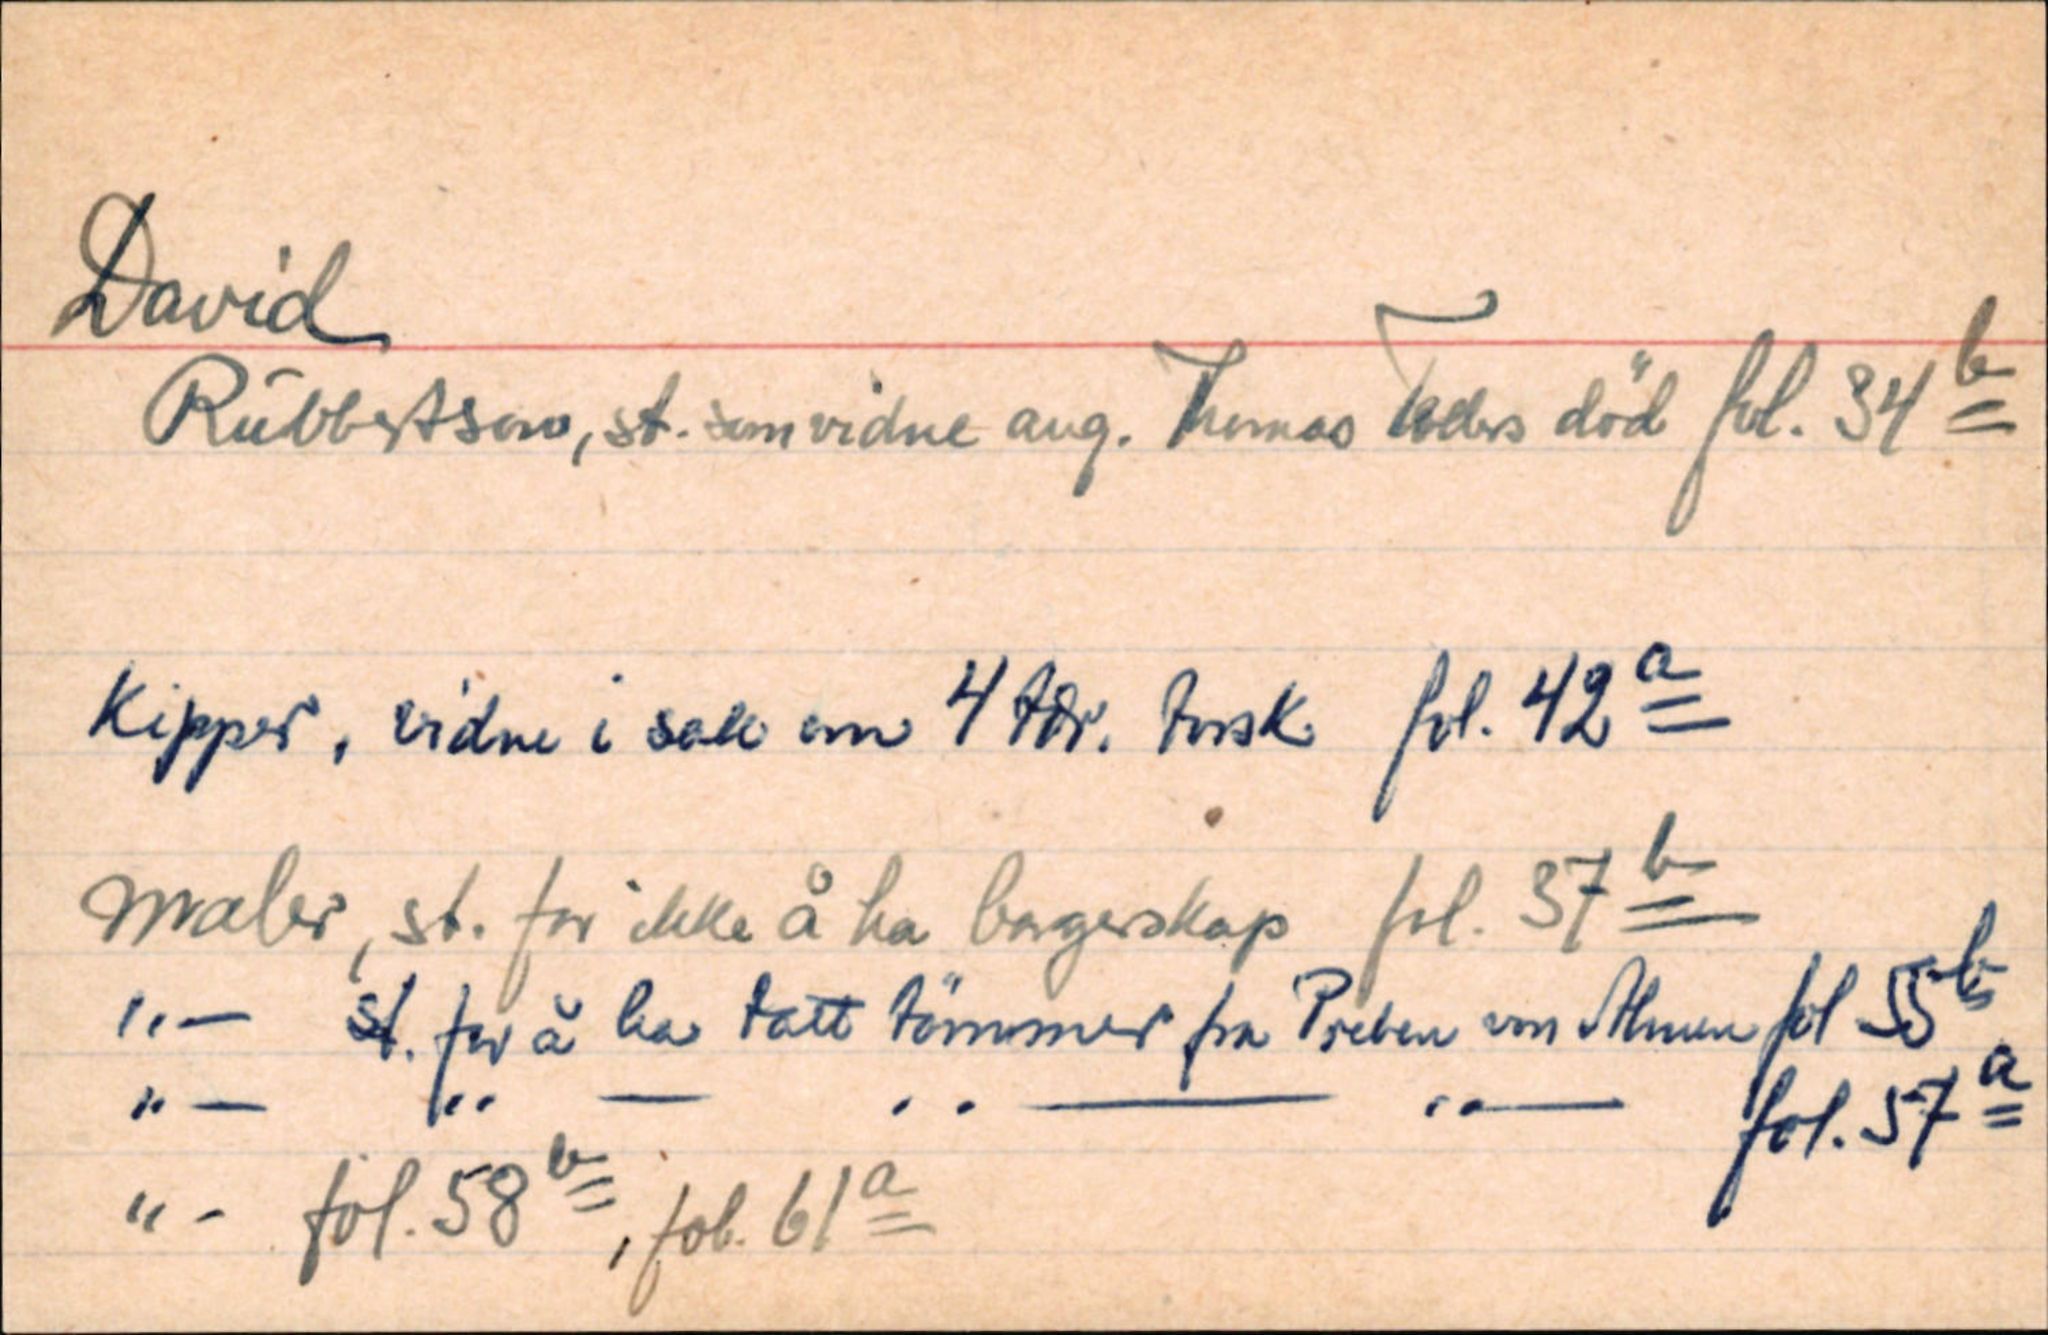 David
Rübbertsen, st. som vidne ang. Thomas Teders död fol. 34 b
Kipper, vidne i sak om 4 tdr. torsk fol. 42 a
Maler, st. for ikke å ha borgerskap fol. 37 b
"- st. for å ha tatt tömmer fra Preben von Ahnen fol 55 b
"- " — " — "— fol. 57 a
"- fol. 58 b, fol. 61 a